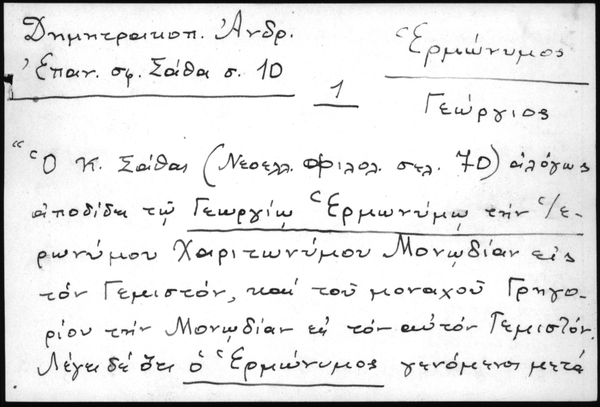 Δημητρακοπ. Ἀνδρ.
Ἑρμώνυμος
Ἐπαν. σφ. Σάθα σ. 10
1
Γεώργιος
"Ὁ Κ. Σάθας (Νεοελλ. Φιλολ. σελ. 70) ἀλόγως
ἀποδίδει τῷ Γεωργίῳ Ἑρμωνύμῳ τὴν Ἱε-
ρωνύμου Χαριτωνύμου Μονῳδίαν εἰς
τὸν Γεμιστόν, καὶ τοῦ μοναχοῦ Γρηγο-
ρίου τὴν Μονῳδίαν εἰς τὸν αὐτὸν Γεμιστόν.
Λέγει δὲ ὅτι ὁ Ἑρμώνυμος γενόμενος μετὰ